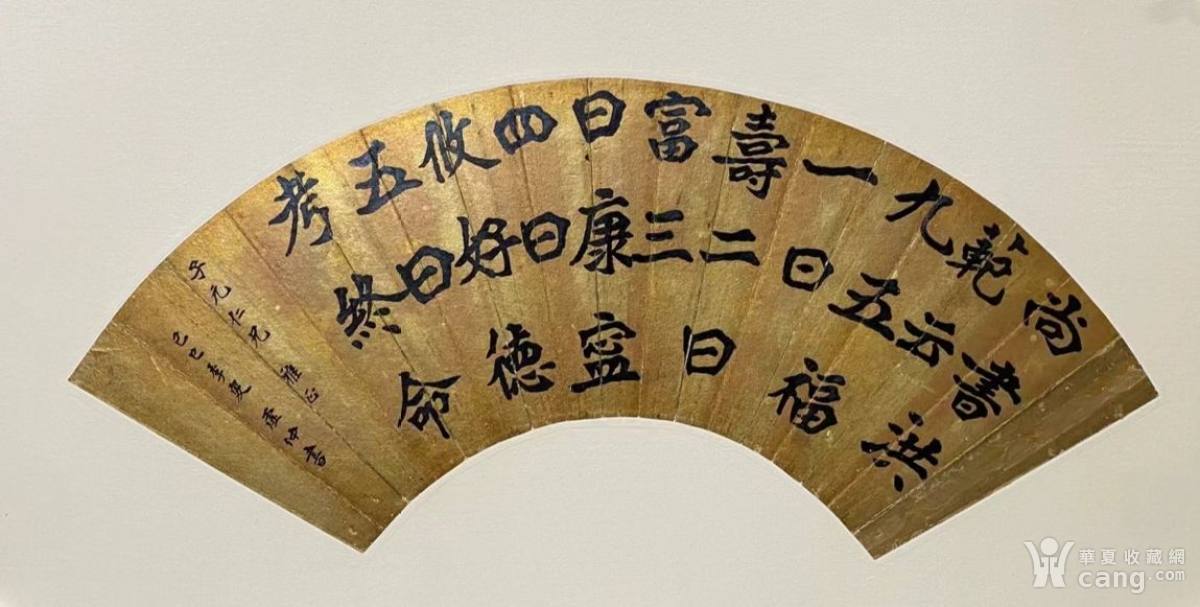 尚書洪
範云
九五福
一曰
壽二曰
富三
曰康寍
四曰
攸好德
五曰
考終命
子元仁兄 雅正
己巳季夏 仲書
華夏收藏網
cang.com